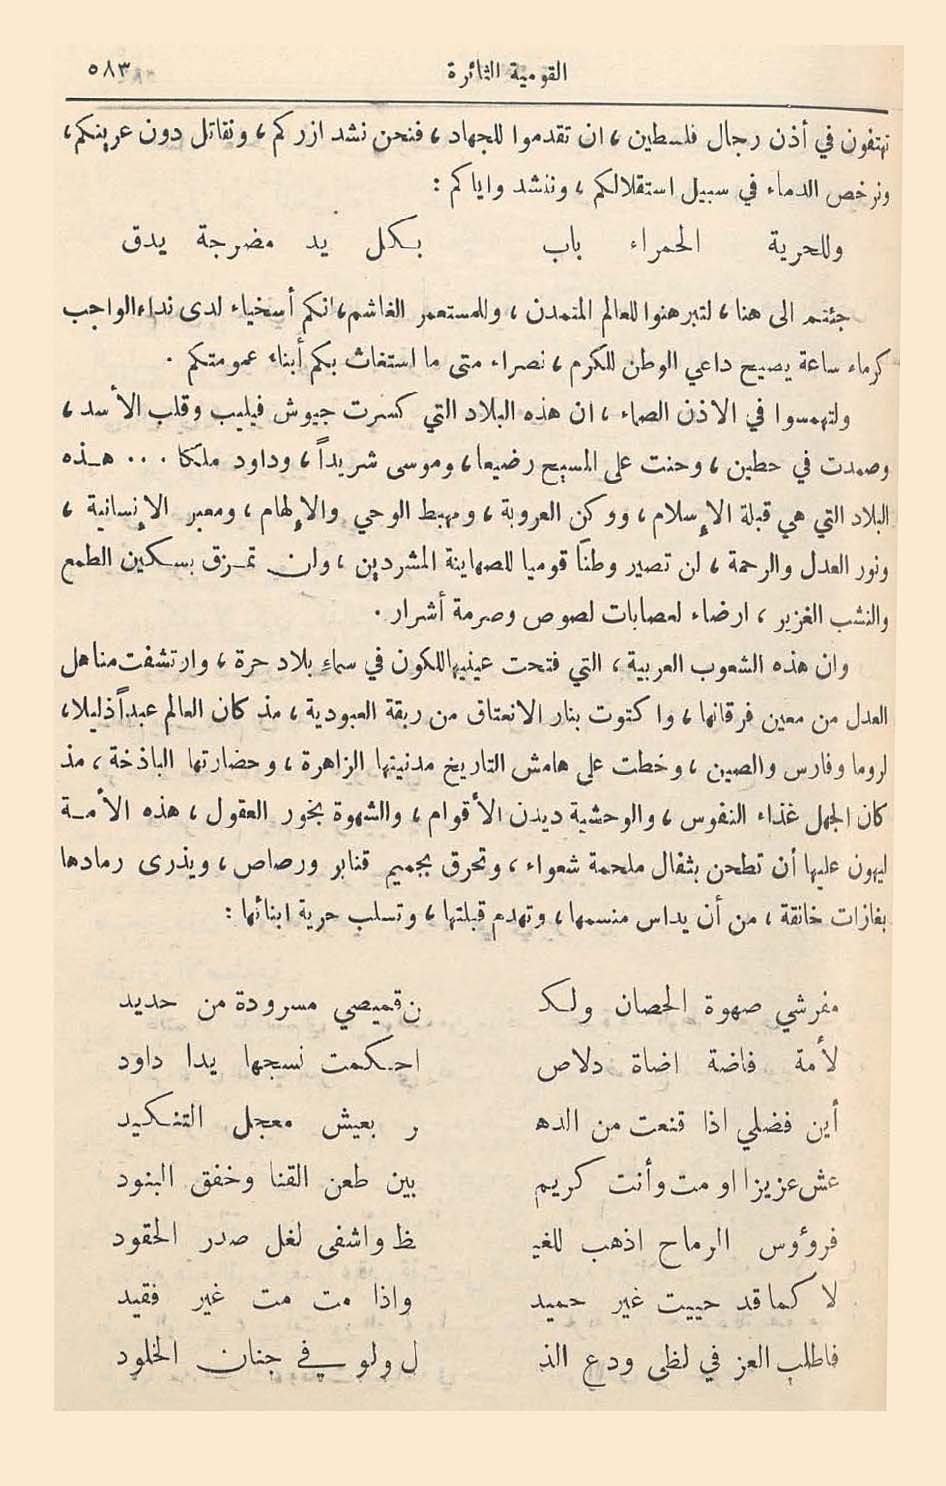 القومية الثائرة ٥٨٣
تهتفون في أذن رجال فلسطين ، ان تقدموا للجهاد ، فنحن نشد ازركم ، ونقاتل دون عرينكم ،
ونرخص الدماء في سبيل استقلالكم ، وننشد واياكم :
وللحرية الحمراء باب بكل يد مضرجة يدق
جئتم الى هنا ، لتبرهنوا للعالم المتمدن ، وللمستعمر الغاشم ، انكم أسخياء لدى نداء الواجب
كرماء ساعة يصيح داعي الوطن للكرم ، نصراء متى ما استغاث بكم أبناء عمومتكم .
ولتهمسوا في الاذن الصماء ، ان هذه البلاد التي كسرت جيوش فيليب وقلب الأسد ،
وصمدت في حطين ، وحنت على المسيح رضيعا ، وموسى شريداً ، وداود ملكا ... هـذه
البلاد التي هي قبلة الإسلام ، ووكن العروبة ، ومهبط الوحي والإلهام ، ومعبر الإنسانية ،
ونور العدل والرحمة ، لن تصير وطناً قوميا للصهاينة المشردين ، وان تمـزق بسـكين الطمع
والنشب الغزير ، ارضاء لعصابات لصوص وصرمة أشرار .
وان هذه الشعوب العربية ، التي فتحت عينيها للكون في سماء بلاد حرة ، وارتشفت مناهل
العدل من معين فرقانها ، واكتوت بنار الانعتاق من ربقة العبودية ، مذ كان العالم عبداً ذليلا ،
لروما وفارس والصين ، وخطت على هامش التاريخ مدنيتها الزاهرة ، وحضارتها الباذخة ، مذ
كان الجهل غذاء النفوس ، والوحشية ديدن الأقوام ، والشهوة بخور العقول ، هذه الأمـة
ليهون عليها أن تطحن بثفال ملحمة شعواء ، وتحرق بجميم قنابر ورصاص ، ويذرى رمادها
بغازات خانقة ، من أن يداس منسمها ، وتهدم قبلتها ، وتسلب حرية ابنائها :
مفرشي صهوة الحصان ولـكـ ن قميصي مسرودة من حديد
لأمة فاضة اضاة دلاص احـكمت نسجها يدا داود
أين فضلي اذا قنعت من الدهـ ر بعيش معجل التنـكيد
عش عزيزا او مت وأنت كريم بين طعن القنا وخفق البنود
فرؤوس الرماح اذهب للغيـ ظ واشفى لغل صدر الحقود
لا كما قد حييت غير حميد واذا مت مت غير فقيد
فاطلب العز في لظى ودع الذ ل ولو في جنان الخلود